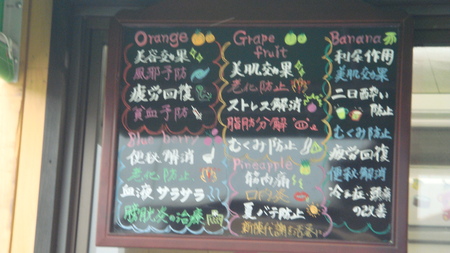 Orange
美容効果
風邪予防
疲労回復
貧血予防
Blue berry
便秘解消
老化防止
血液サラサラ
膀胱炎の治療
Grape fruit
美肌効果
老化防止
ストレス解消
脂肪分解
むくみ防止
Pineapple
筋肉痛
口内炎
夏バテ防止
新陳代謝を活発に
Banana
利尿作用
美肌効果
二日酔い
防止
むくみ防止
疲労回復
便秘解消
冷え症・頭痛
の改善